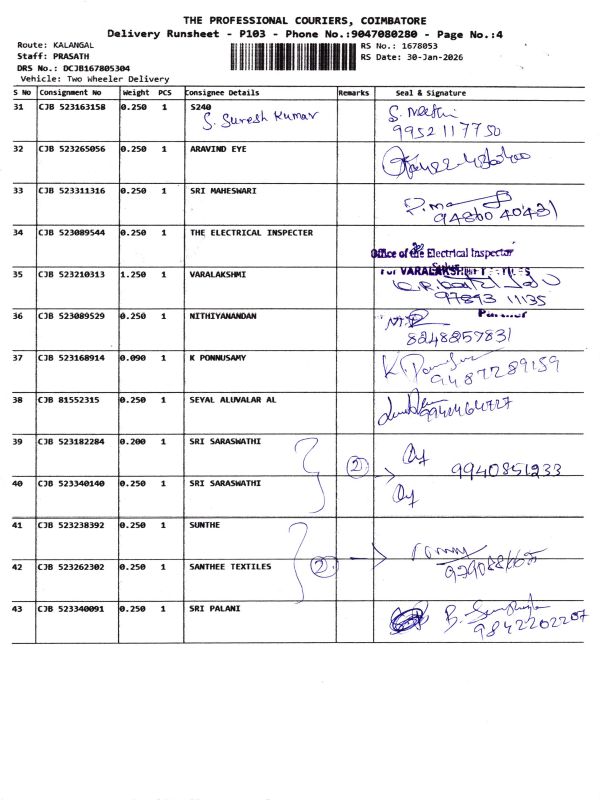 THE PROFESSIONAL COURIERS, COIMBATORE
Delivery Runsheet - P103 - Phone No.:9047080280 - Page No.:4
Route: KALANGAL
Staff: PRASATH
DRS No.: DCJB167805304
Vehicle: Two Wheeler Delivery
RS No.: 1678053
RS Date: 30-Jan-2026
S No Consignment No Weight PCS Consignee Details Remarks Seal & Signature
31 CJB 523163158 0.250 1 S240
S. Suresh Kumar
9952117750
32 CJB 523265056 0.250 1 ARAVIND EYE
33 CJB 523311316 0.250 1 SRI MAHESWARI
9486040431
34 CJB 523089544 0.250 1 THE ELECTRICAL INSPECTER
Office of the Electrical Inspector
35 CJB 523210313 1.250 1 VARALAKSHMI
97893 11135
36 CJB 523089529 0.250 1 NITHIYANANDAN
Partner
8248257831
37 CJB 523168914 0.090 1 K PONNUSAMY
9487289159
38 CJB 81552315 0.250 1 SEYAL ALUVALAR AL
39 CJB 523182284 0.200 1 SRI SARASWATHI
2
9940851233
40 CJB 523340140 0.250 1 SRI SARASWATHI
41 CJB 523238392 0.250 1 SUNTHE
42 CJB 523262302 0.250 1 SANTHEE TEXTILES
2
43 CJB 523340091 0.250 1 SRI PALANI
9842202207